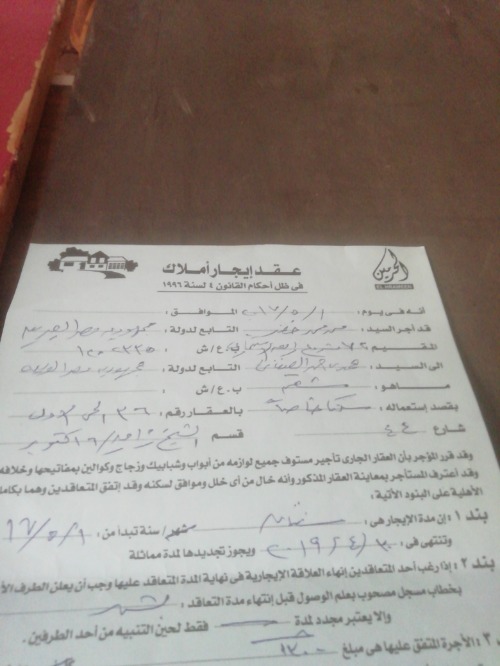 عقد إيجار أملاك
الحرمين
EL-HARAMEEN
فى ظل أحكام القانون ٤ لسنة ١٩٩٦
أنه فى يوم : ٢٠١٧/٥/١ الموافق :
قد أجر السيد : التابع لدولة : جمهورية مصر العربية
المقيم ع/ش :
الى السيد : التابع لدولة : جمهورية مصر العربية
ماهو : مقيم ب.ع/ش :
بقصد إستعماله : بالعقار رقم : ٣٦ الحى الأول
شارع ٤٤ قسم الشيخ زايد / ٦ اكتوبر
وقد قرر المؤجر بأن العقار الجارى تأجير مستوف جميع لوازمه من أبواب وشبابيك وزجاج وكوالين بمفاتيحها وخلافه
وقد أعترف المستأجر بمعاينة العقار المذكور وأنه خال من أى خلل وموافق لسكنه وقد إتفق المتعاقدين وهما بكامل
الأهلية على البنود الآتية :
بند ١ : إن مدة الإيجار هى : سنتان شهر/ سنة تبدأ من : ١٧/٥/١
وتنتهى فى : ٢٠١٩/٤/٣٠ ويجوز تجديدها لمدة مماثلة
بند ٢ : إذا رغب أحد المتعاقدين إنهاء العلاقة الإيجارية فى نهاية المدة المتعاقد عليها وجب أن يعلن الطرف الأ
بخطاب مسجل مصحوب بعلم الوصول قبل إنتهاء مدة التعاقد : شهر
والا يعتبر مجدد لمدة فقط لحين التنبيه من أحد الطرفين .
٣ : الأجرة المتفق عليها هى مبلغ ١٣٠٠